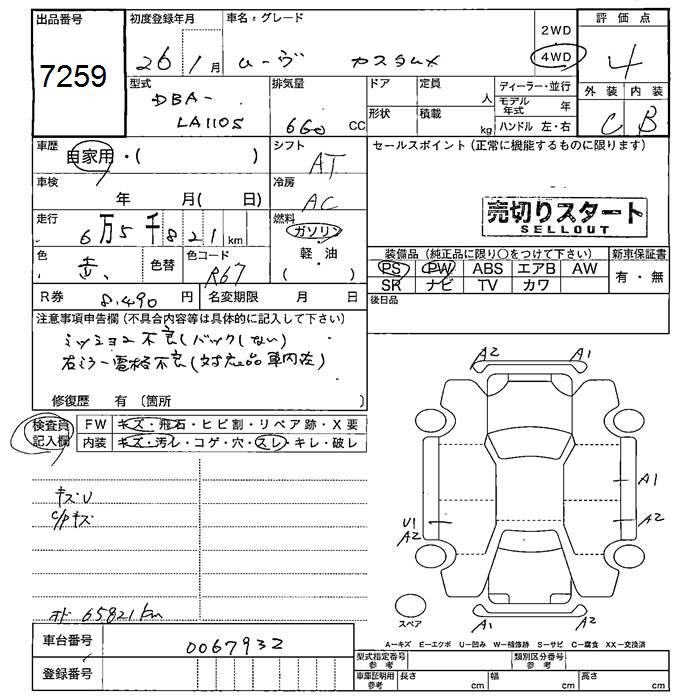 出品番号 初度登録年月 車名:グレード 2WD 評価点
7259 26 1月 ムーヴ カスタム 4WD 4
型式 排気量 ドア 定員 ディーラー・並行 外装 内装
DBA- 人 モデル年式 年 C B
LA110S 660 CC 形状 積載 kg ハンドル 左・右
車歴 自家用・( ) シフト AT セールスポイント (正常に機能するものに限ります)
車検 年 月( 日) 冷房 AC
売切りスタート
SELLOUT
走行 6万5千821 km 燃料 ガソリン
軽・油
( )
色 色替 色コード R67
装備品 (純正品に限り○をつけて下さい) 新車保証書
PS PW ABS エアB AW 有・無
SR ナビ TV カワ
R券 8,490 円 名変期限 月 日 後日品
注意事項申告欄 (不具合内容等は具体的に記入して下さい)
ミッション不良(バックしない)
右ミラー電格不良(対応品車内在)
修復歴 有 (箇所 )
検査員記入欄 FW キズ・飛石・ヒビ割・リペア跡・X要
内装 キズ・汚レ・コゲ・穴・スレ・キレ・破レ
A2 A1
A1
キズU
C/Pキズ
U1 A2
A2
オド 65821km
スペア A1 A2
A-キズ E-エクボ U-凹み W-補修跡 S-サビ C-腐食 XX-交換済
車台番号 0067932
登録番号
型式指定番号 参考 類別区分番号 参考
車庫証明用 参考 長さ cm 幅 cm 高さ cm